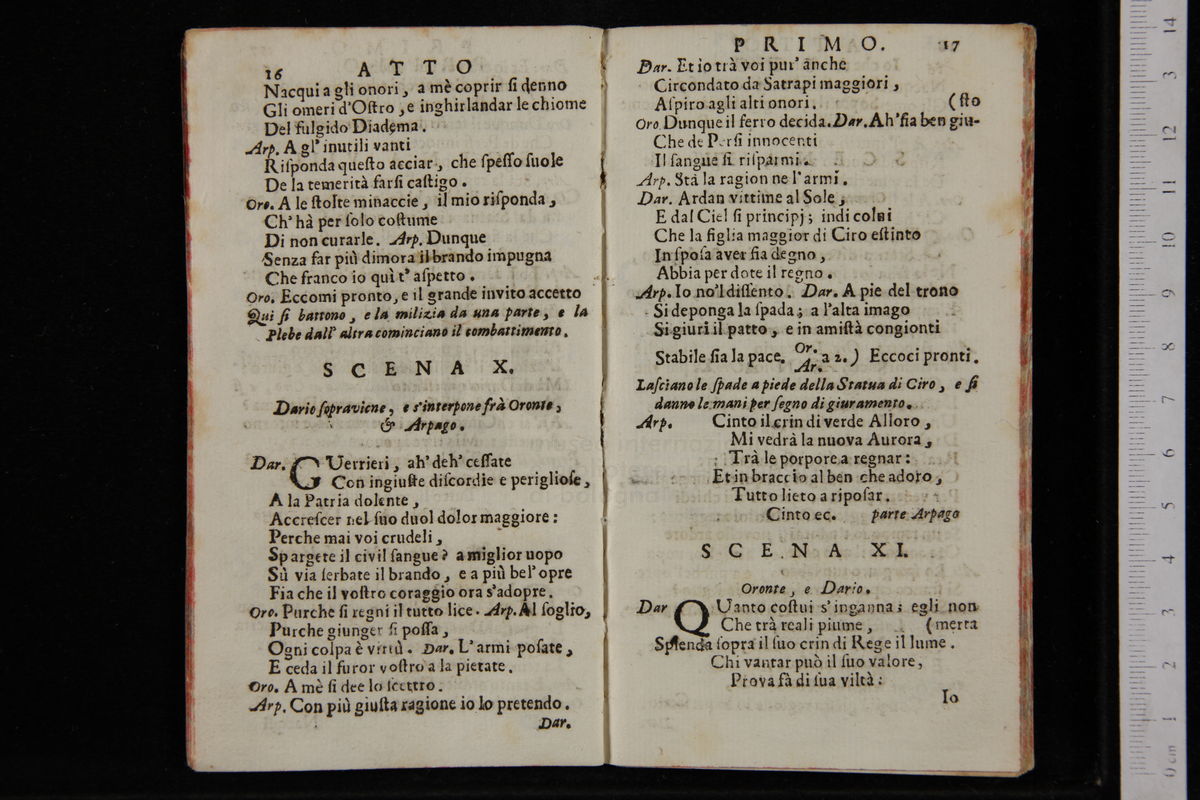 16 ATTO
Nacqui a gli onori, a mè coprir ſi denno
Gli omeri d'Oſtro, e inghirlandar le chiome
Del fulgido Diadema.
Arp. A gl'inutili vanti
Riſponda queſto acciar, che ſpeſſo ſuole
De la temerità farſi caſtigo.
Oro. A le ſtolte minaccie, il mio riſponda,
Ch'hà per ſolo coſtume
Di non curarle. Arp. Dunque
Senza far più dimora il brando impugna
Che franco io quì t'aſpetto.
Oro. Eccomi pronto, e il grande invito accetto
Qui ſi battono, e la milizia da una parte, e la
Plebe dall'altra cominciano il combattimento.
SCENA X.
Dario ſopraviene, e s'interpone frà Oronte,
& Arpago.
Dar. GUerrieri, ah' deh' ceſſate
Con ingiuſte diſcordie e periglioſe,
A la Patria dolente,
Accreſcer nel ſuo duol dolor maggiore:
Perche mai voi crudeli,
Spargete il civil ſangue? a miglior uopo
Sù via ſerbate il brando, e a più bel'opre
Fia che il voſtro coraggio ora s'adopre.
Oro. Purche ſi regni il tutto lice. Arp. Al ſoglio,
Purche giunger ſi poſſa,
Ogni colpa è virtù. Dar. L'armi poſate,
E ceda il furor voſtro a la pietate.
Oro. A mè ſi dee lo ſcettro.
Arp. Con più giuſta ragione io lo pretendo.
Dar.
PRIMO. 17
Dar. Et io trà voi pur'anche
Circondato da Satrapi maggiori,
Aſpiro agli alti onori. (ſto
Oro. Dunque il ferro decida. Dar. Ah'ſia ben giu-
Che de Perſi innocenti
Il ſangue ſi riſparmi.
Arp. Stà la ragion ne l'armi.
Dar. Ardan vittime al Sole,
E dal Ciel ſi principj; indi colui
Che la figlia maggior di Ciro eſtinto
In ſpoſa aver ſia degno,
Abbia per dote il regno.
Arp. Io no'l diſſento. Dar. A pie del trono
Si deponga la ſpada; a l'alta imago
Si giuri il patto, e in amiſtà congionti
Stabile ſia la pace. Or. Ar. a 2.) Eccoci pronti.
Laſciano le ſpade a piede della Statua di Ciro, e ſi
danno le mani per ſegno di giuramento.
Arp. Cinto il crin di verde Alloro,
Mi vedrà la nuova Aurora,
Trà le porpore a regnar:
Et in braccio al ben che adoro,
Tutto lieto a ripoſar.
Cinto ec. parte Arpago
SCENA XI.
Oronte, e Dario.
Dar QUanto coſtui s'inganna; egli non
Che trà reali piume, (merta
Splenda ſopra il ſuo crin di Rege il lume.
Chi vantar può il ſuo valore,
Prova fà di ſua viltà:
Io